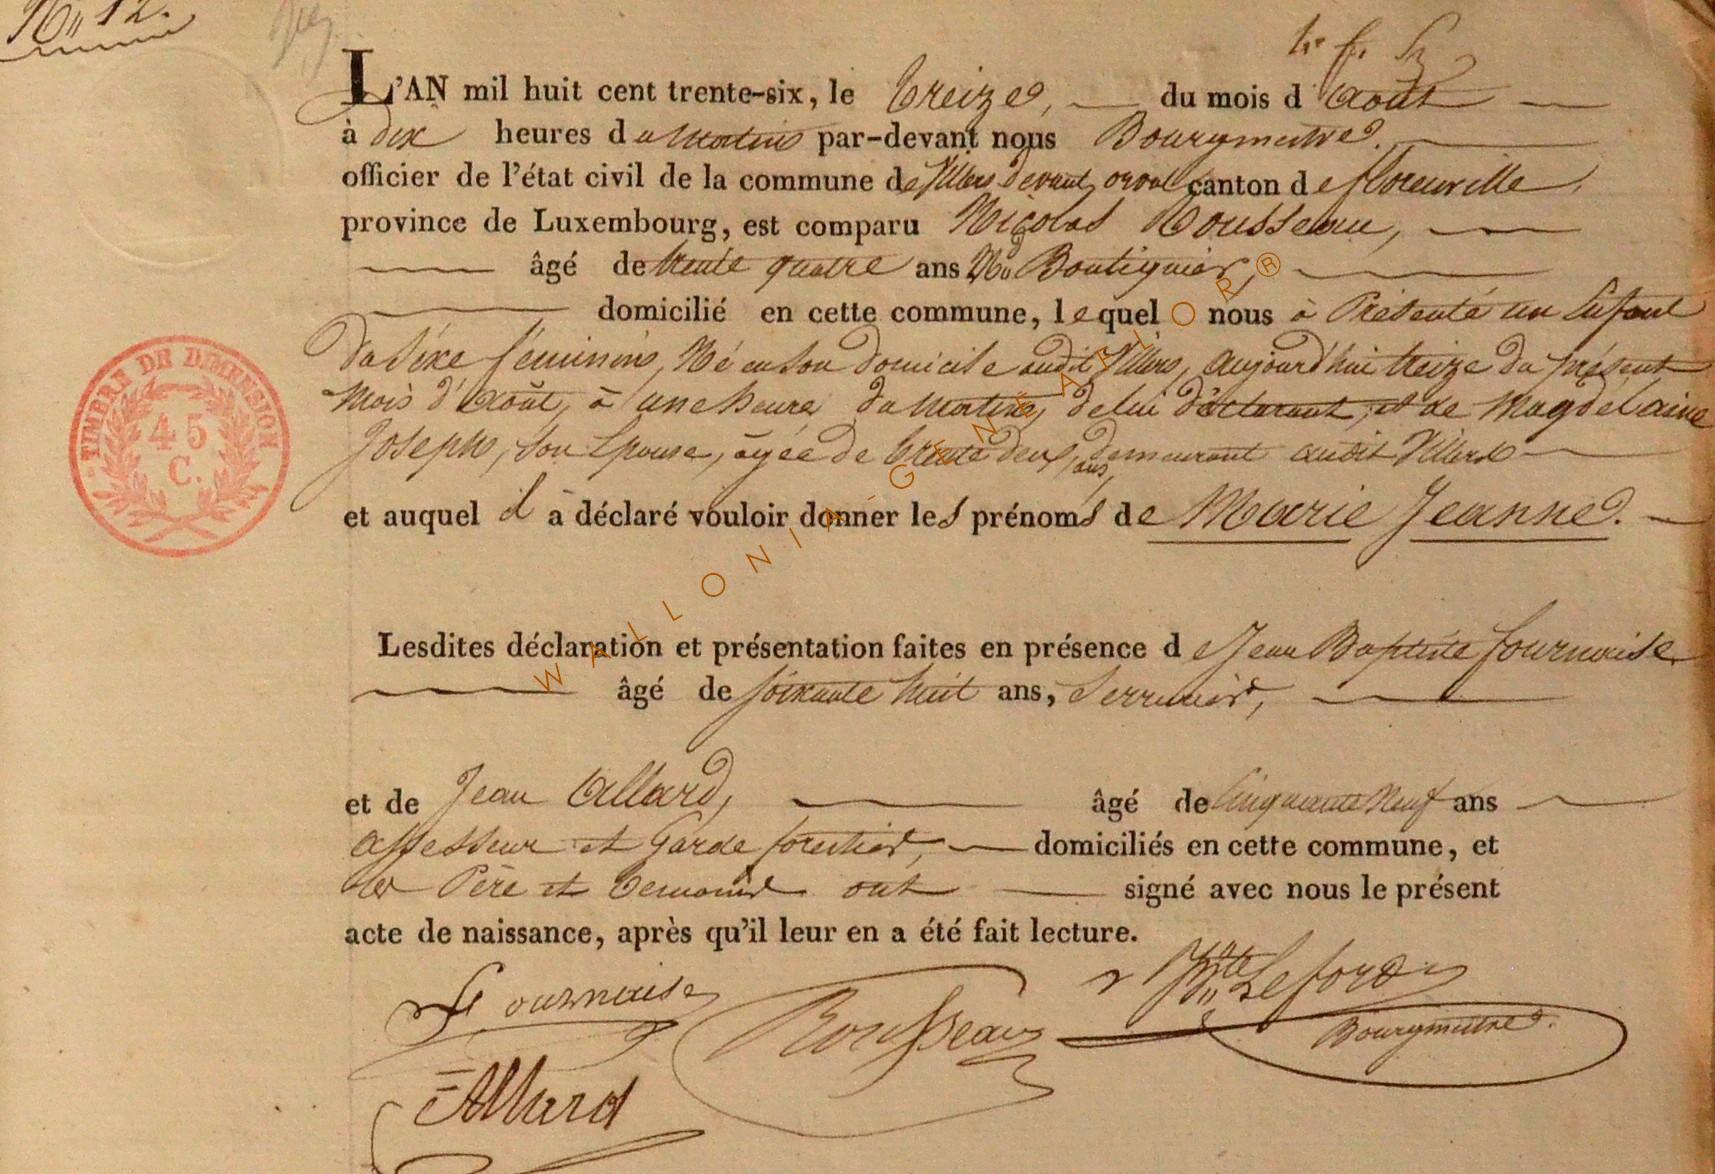 No 12.
L'AN mil huit cent trente-six, le treize, du mois d'août
à dix heures du matin par-devant nous Bourgmestre.
officier de l'état civil de la commune de Villers devant orval canton de florenville,
province de Luxembourg, est comparu Nicolas Rousseau,
âgé de trente quatre ans Md Boutiquier,
domicilié en cette commune, lequel nous à Présenté un Enfant
du séxe féminin, Né en son domicile audit Villers, aujourd'hui treize du présent
mois d'août, à une heure du matin, de lui déclarant, et de Magdelaine
Joseph, son Epouse, âgée de trente deux ans, demeurant audit Villers
et auquel il à déclaré vouloir donner les prénoms de Marie Jeanne.
Lesdites déclaration et présentation faites en présence de Jean Baptiste fournaise
âgé de soixante huit ans, Serrurier,
et de Jean Allard, âgé de Cinquante Neuf ans
assesseur et Garde forestier, domiciliés en cette commune, et
les Père et temoins ont signé avec nous le présent
acte de naissance, après qu'il leur en a été fait lecture.
Fournaise
Rousseau
Leford
Bourgmestre.
Allard
TIMBRE DE DIMENSION
45
C.
WALLONIA-GENEALOR®